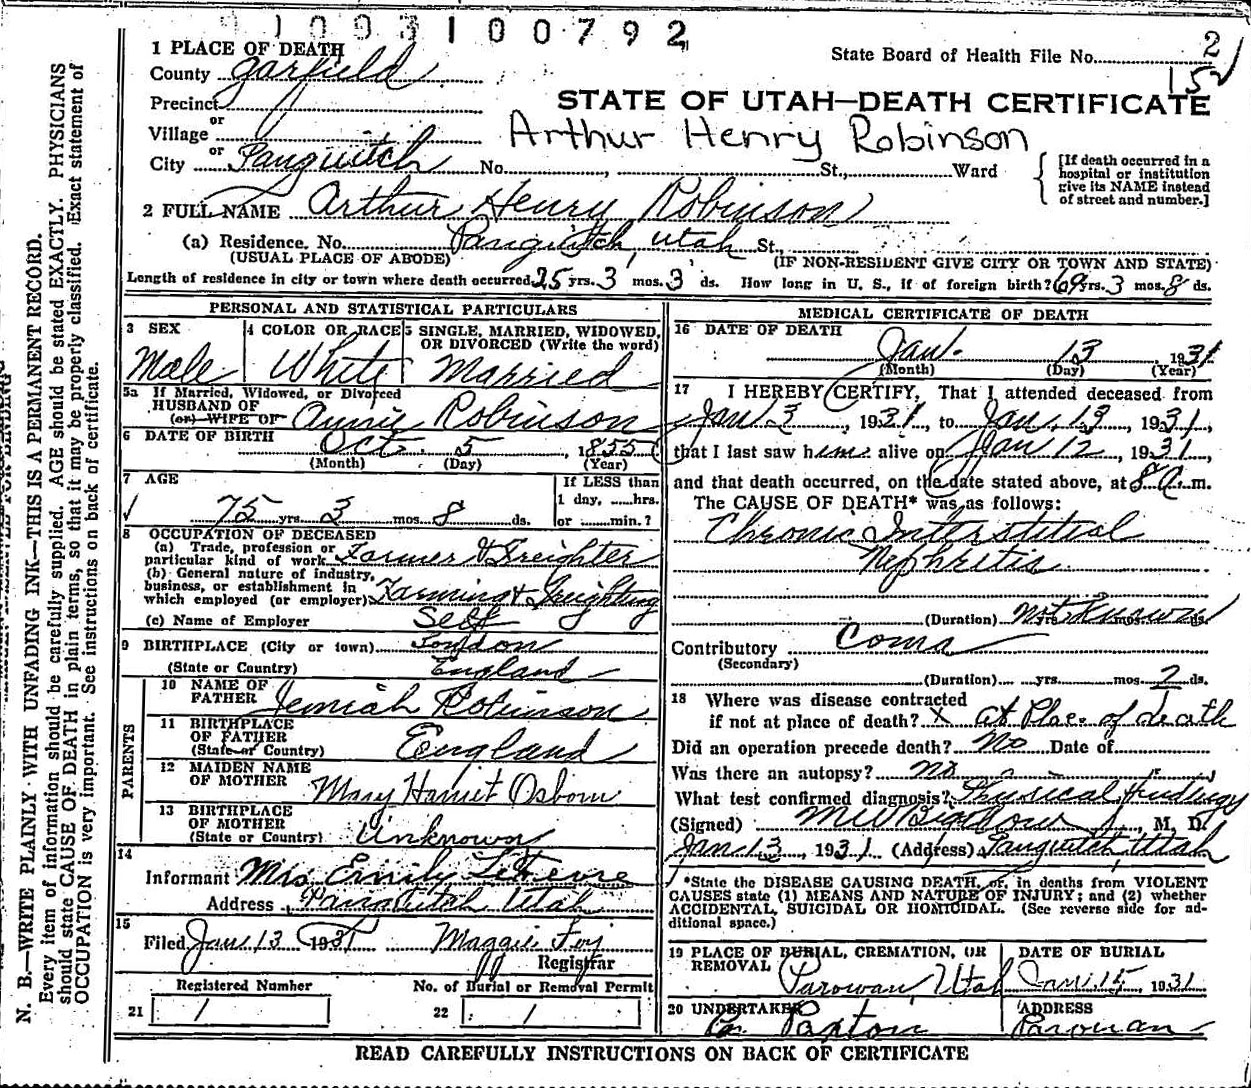 3100792
State Board of Health File No. 2
152
STATE OF UTAH—DEATH CERTIFICATE
Arthur Henry Robinson
1 PLACE OF DEATH
County Garfield
Precinct
or
Village
or
City Panguitch No. St., Ward
[If death occurred in a
hospital or institution
give its NAME instead
of street and number.]
2 FULL NAME Arthur Henry Robinson
(a) Residence. No. Panguitch, Utah St.,
(USUAL PLACE OF ABODE) (IF NON-RESIDENT GIVE CITY OR TOWN AND STATE)
Length of residence in city or town where death occurred 25 yrs. 3 mos. 3 ds. How long in U. S., if of foreign birth? 69 yrs. 3 mos. 8 ds.
PERSONAL AND STATISTICAL PARTICULARS
3 SEX
Male
4 COLOR OR RACE
White
5 SINGLE, MARRIED, WIDOWED,
OR DIVORCED (Write the word)
Married
5a If Married, Widowed, or Divorced
HUSBAND OF
(or) WIFE OF Annie Robinson
6 DATE OF BIRTH Oct. 5, 1855
(Month) (Day) (Year)
7 AGE
75 yrs. 3 mos. 8 ds.
If LESS than
1 day, ......hrs.
or ........min.?
8 OCCUPATION OF DECEASED
(a) Trade, profession or
particular kind of work Farmer & Freighter
(b) General nature of industry,
business, or establishment in
which employed (or employer) Farming & Freighting
(c) Name of Employer Self
9 BIRTHPLACE (City or town) London
(State or Country) England
PARENTS
10 NAME OF
FATHER Jemiah Robinson
11 BIRTHPLACE
OF FATHER
(State or Country) England
12 MAIDEN NAME
OF MOTHER Mary Harriet Osborn
13 BIRTHPLACE
OF MOTHER
(State or Country) Unknown
14
Informant Mrs Emily LeFevre
Address Panguitch Utah
15
Filed Jan 13 1931 Maggie Foy
Registrar
Registered Number No. of Burial or Removal Permit
21 1 22 1
MEDICAL CERTIFICATE OF DEATH
16 DATE OF DEATH
Jan. 13, 1931
(Month) (Day) (Year)
17 I HEREBY CERTIFY, That I attended deceased from
Jan 3, 1931, to Jan. 13, 1931,
that I last saw him alive on Jan 12, 1931,
and that death occurred, on the date stated above, at 8 a.m.
The CAUSE OF DEATH* was as follows:
Chronic Interstitial
Nephritis
(Duration) not known
Contributory Coma
(Secondary)
(Duration) yrs. mos. 2 ds.
18 Where was disease contracted
if not at place of death? X at Place of death
Did an operation precede death? No Date of
Was there an autopsy? no
What test confirmed diagnosis? Phisical findings
(Signed) M W Bigelow, M. D.
Jan 13, 1931 (Address) Panguitch, Utah
*State the DISEASE CAUSING DEATH, or, in deaths from VIOLENT
CAUSES state (1) MEANS AND NATURE OF INJURY; and (2) whether
ACCIDENTAL, SUICIDAL OR HOMICIDAL. (See reverse side for ad-
ditional space.)
19 PLACE OF BURIAL, CREMATION, OR
REMOVAL Parowan, Utah
DATE OF BURIAL
Jan. 15, 1931
20 UNDERTAKER
Paxton
ADDRESS
Parowan
READ CAREFULLY INSTRUCTIONS ON BACK OF CERTIFICATE
N. B.—WRITE PLAINLY WITH UNFADING INK—THIS IS A PERMANENT RECORD.
Every item of information should be carefully supplied. AGE should be stated EXACTLY. PHYSICIANS
should state CAUSE OF DEATH in plain terms, so that it may be properly classified. Exact statement of
OCCUPATION is very important. See instructions on back of certificate.